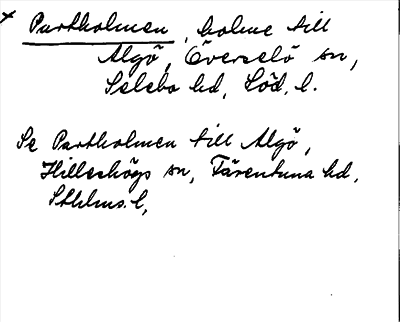 Partholmen, holme till
Algö, Överselö sn,
Selebo hd, Söd. l.
Se Partholmen till Algö,
Hilleshögs sn, Färentuna hd,
Sthlms. l,